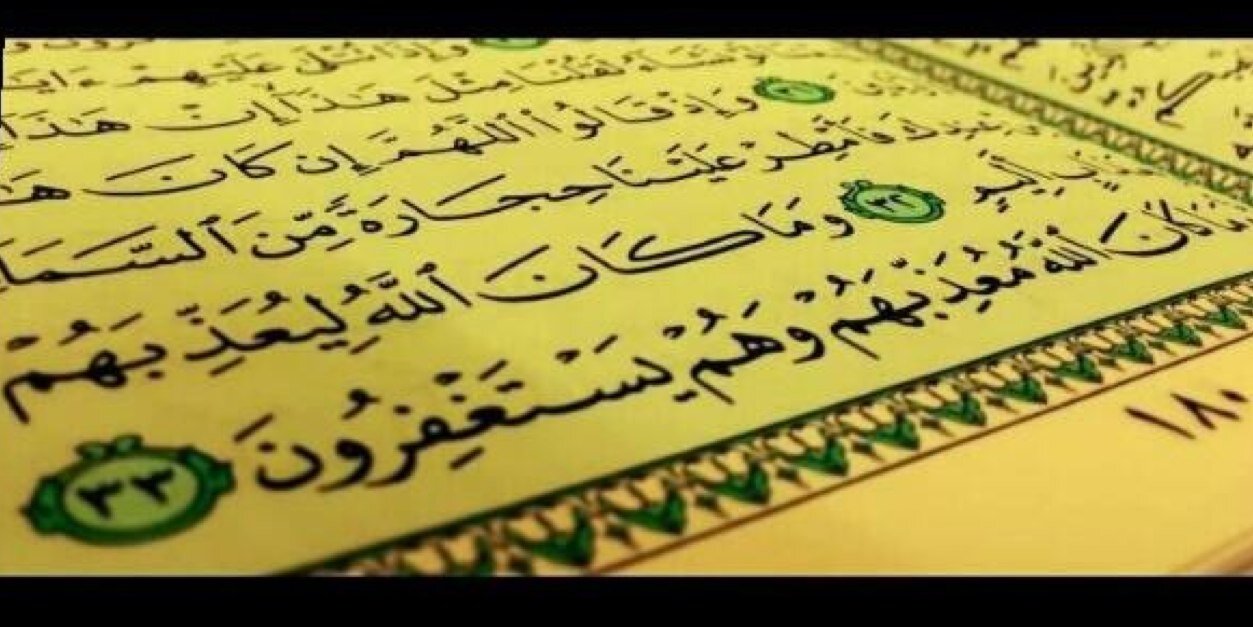 وَإِذَا تُتْلَىٰ عَلَيْهِمْ
نَشَآءُ لَقُلْنَا مِثْلَ هَٰذَآ إِنْ هَٰذَآ
٣١ وَإِذْ قَالُوا۟ ٱللَّهُمَّ إِن كَانَ
عِندِكَ فَأَمْطِرْ عَلَيْنَا حِجَارَةً مِّنَ ٱلسَّمَا
أَلِيمٍ ٣٢ وَمَا كَانَ ٱللَّهُ لِيُعَذِّبَهُمْ
كَانَ ٱللَّهُ مُعَذِّبَهُمْ وَهُمْ يَسْتَغْفِرُونَ ٣٣
١٨٠